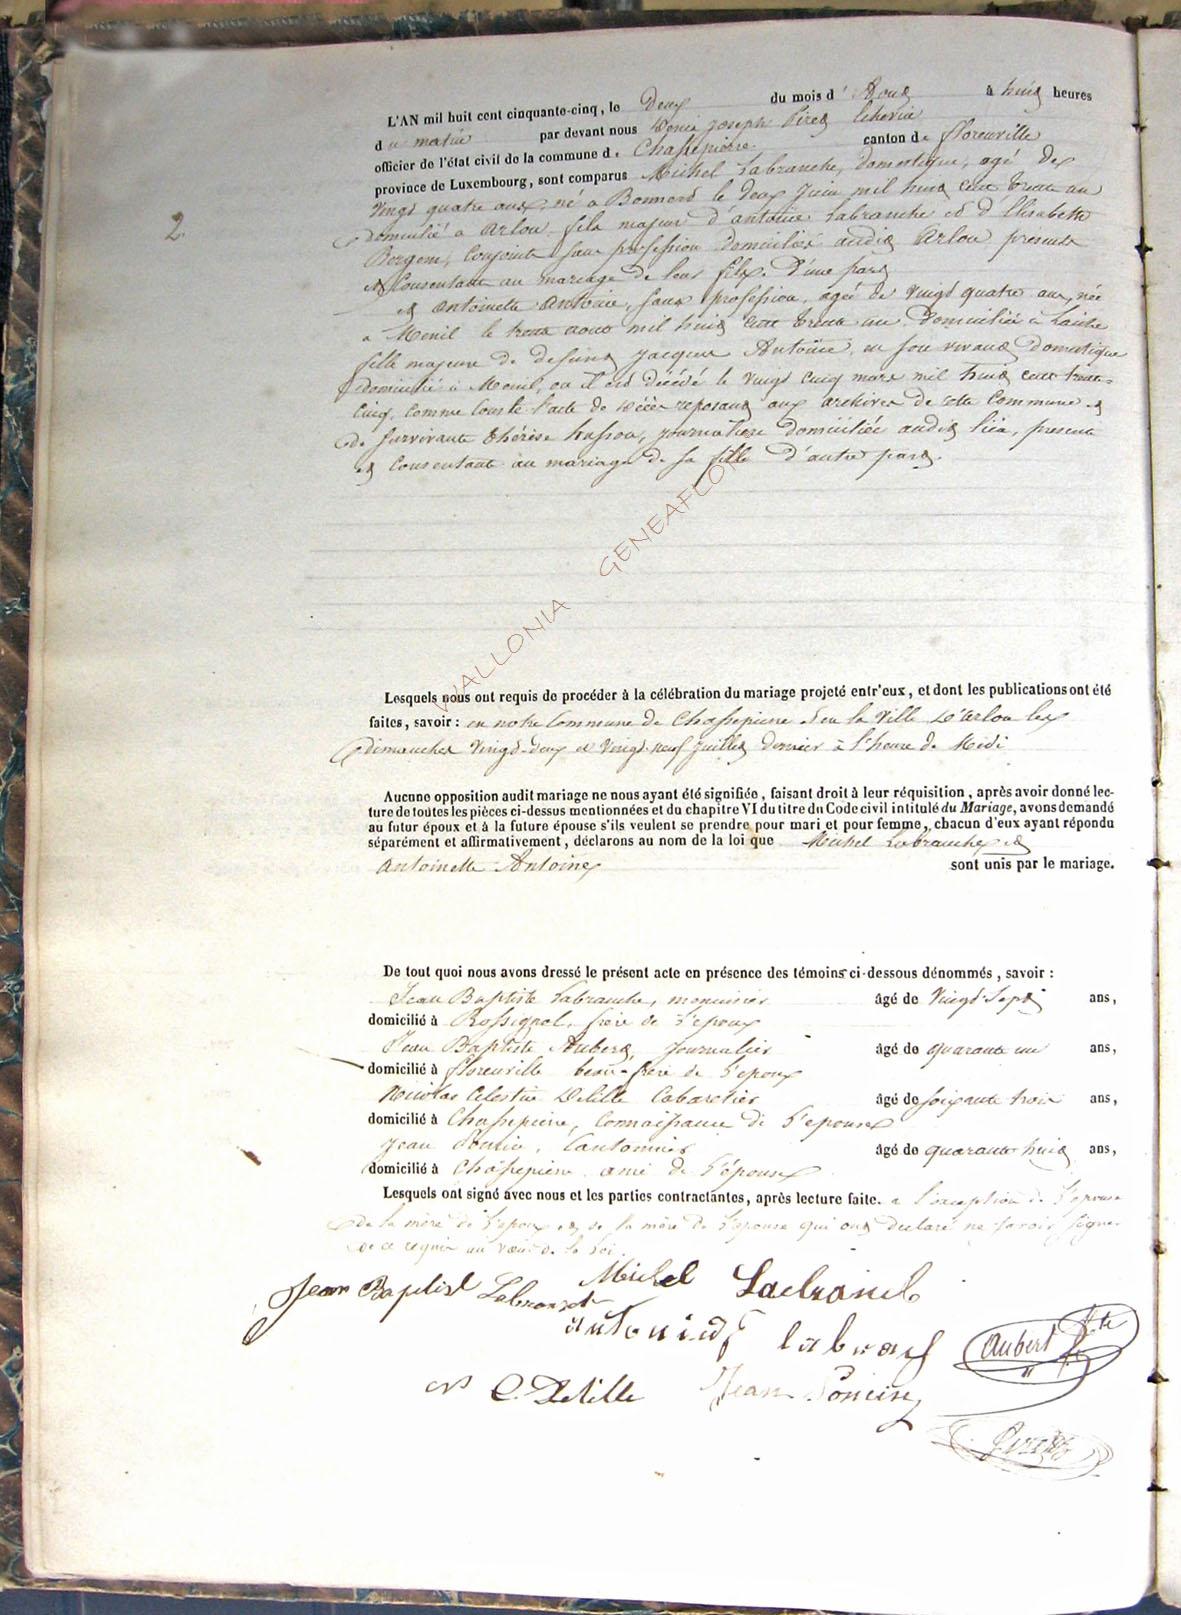 L'AN mil huit cent cinquante-cinq, le Deux du mois d' Aout à huit heures
du matin par devant nous Denis Joseph Piret Echevin
officier de l'état civil de la commune de Chassepierre canton de florenville
province de Luxembourg, sont comparus Michel Labranche, Domestique, agé de
vingt quatre ans, né à Bonnert le deux Juin mil huit cent trente un
2.
domicilié à Arlon, fils majeur d'antoine Labranche et d'Elisabette
Bergem, Conjoints sans profession domiciliés audit Arlon présents
et Consentant au mariage de leur fils. D'une part
et antoinette antoine, sans profession, agée de vingt quatre ans, née
a Menil le trente aout mil huit cent trente un domiciliée à Laiche
fille majeure de defunt Jacques Antoine, en son vivant domestique
domicilié à Menil, ou il est décédé le vingt cinq mars mil huit cent trente
cinq, comme conste l'acte de décès reposant aux archives de cette Commune et
de survivante thérèse husson, journaliere domiciliée audit lieu, presente
et consentante au mariage de sa fille D'autre part.
WALLONIA GENEAFLOR
Lesquels nous ont requis de procéder à la célébration du mariage projeté entr'eux, et dont les publications ont été
faites, savoir : en notre Commune de Chassepierre et en la Ville D'Arlon les
dimanches vingt-deux et vingt-neuf juillet dernier à l'heure de Midi
Aucune opposition audit mariage ne nous ayant été signifiée, faisant droit à leur réquisition, après avoir donné lec-
ture de toutes les pièces ci-dessus mentionnées et du chapitre VI du titre du Code civil intitulé du Mariage, avons demandé
au futur époux et à la future épouse s'ils veulent se prendre pour mari et pour femme, chacun d'eux ayant répondu
séparément et affirmativement, déclarons au nom de la loi que Michel Labranche et
Antoinette Antoine sont unis par le mariage.
De tout quoi nous avons dressé le présent acte en présence des témoins ci-dessous dénommés, savoir :
Jean Baptiste Labranche, menuisier âgé de vingt-sept ans,
domicilié à Rossignol, frère de l'epoux
Jean Baptiste Aubert, Journalier âgé de quarante un ans,
domicilié à florenville beau-frère de l'epoux
Nicolas Celestin Delille Cabaretier âgé de soixante trois ans,
domicilié à Chassepierre, Connaissance de l'epouse
Jean Poncin, Cantonnier âgé de quarante huit ans,
domicilié à Chassepierre ami de l'épouse
Lesquels ont signé avec nous et les parties contractantes, après lecture faite. a l'exception de l'epouse
de la mère de l'epoux et de la mère de l'epouse qui ont declaré ne savoir signer
de ce requis au vœu de la loi.
Jean Baptist Labranch
Michel Labranch
Aubert
C. Delille
Jean Poncin